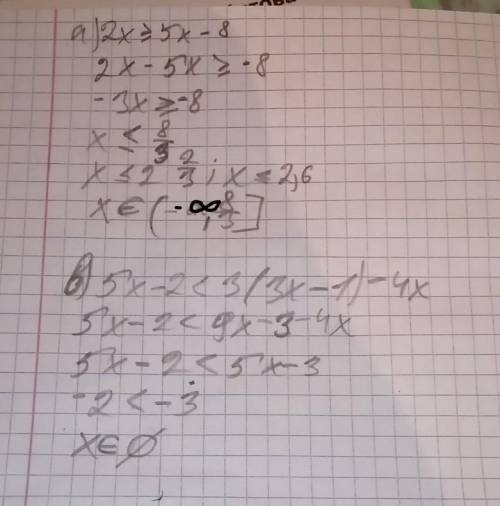 а) 2x ≥ 5x - 8
2x - 5x ≥ -8
-3x ≥ -8
x ≤ 8/3
x ≤ 2 2/3 ; x ≤ 2,6
x ∈ (-∞, 8/3]
в) 5x - 2 < 3(3x - 1) - 4x
5x - 2 < 9x - 3 - 4x
5x - 2 < 5x - 3
-2 < -3
x ∈ ∅